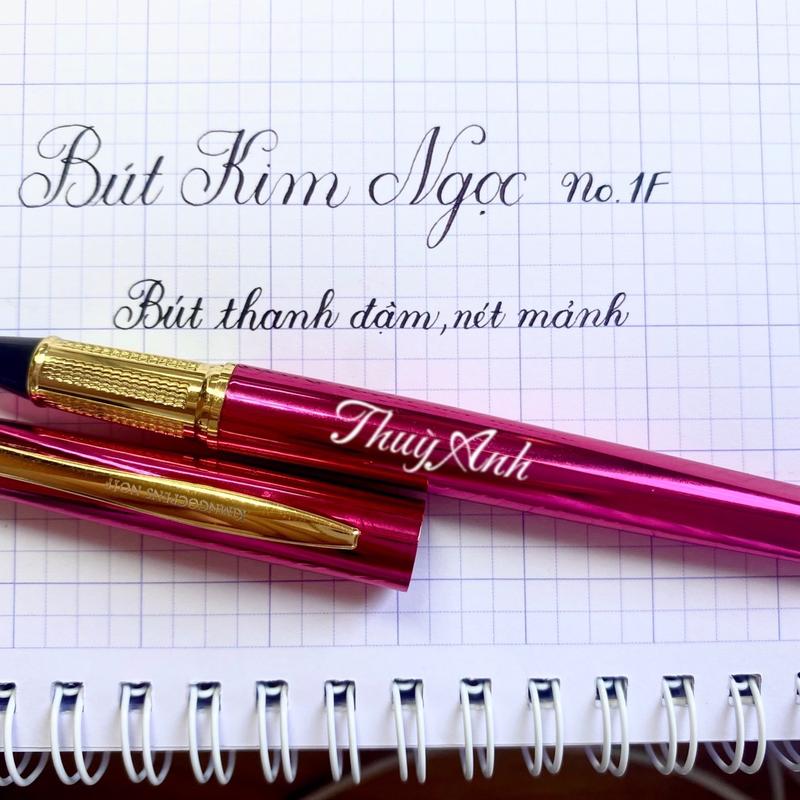 Bút Kim Ngọc No.1F
Bút thanh đậm, nét mảnh
Thuỳ Anh
KIMNGOCPENS NO1F